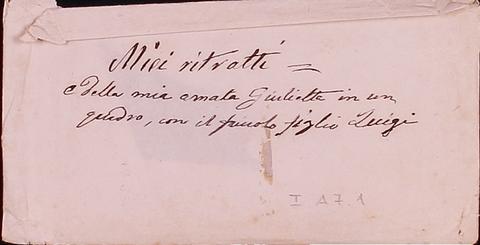 Miei ritratti =
e Della mia amata Giulietta in un
quadro, con il piccolo figlio Luigi
I A7.1